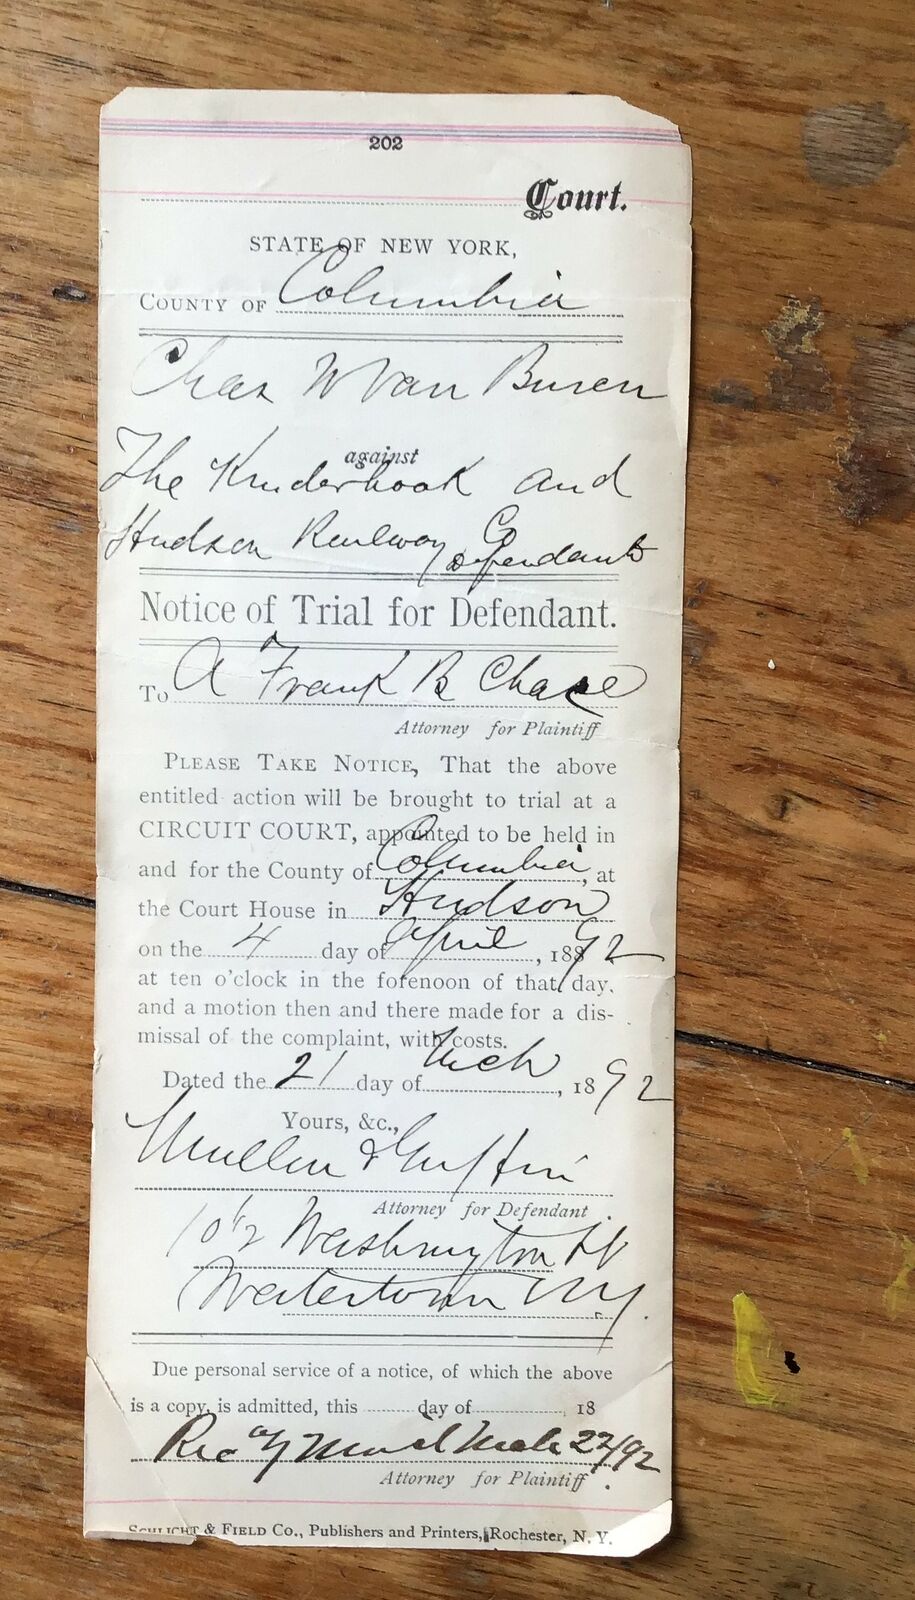 202
Court.
STATE OF NEW YORK,
COUNTY OF Columbia
Chas W Van Buren
against
The Kinderhook and
Hudson Railway Co Defendants
Notice of Trial for Defendant.
To A Frank B Chace
Attorney for Plaintiff
PLEASE TAKE NOTICE, That the above
entitled action will be brought to trial at a
CIRCUIT COURT, appointed to be held in
and for the County of Columbia, at
the Court House in Hudson
on the 4 day of April, 1892
at ten o'clock in the forenoon of that day,
and a motion then and there made for a dis-
missal of the complaint, with costs.
Dated the 21 day of Mch, 1892
Yours, &c.,
Mullin & Griffin
Attorney for Defendant
10 1/2 Washington St
Watertown N.Y.
Due personal service of a notice, of which the above
is a copy, is admitted, this day of 18
Rec by Mail Mch 22/92
Attorney for Plaintiff.
SCHLICHT & FIELD CO., Publishers and Printers, Rochester, N. Y.